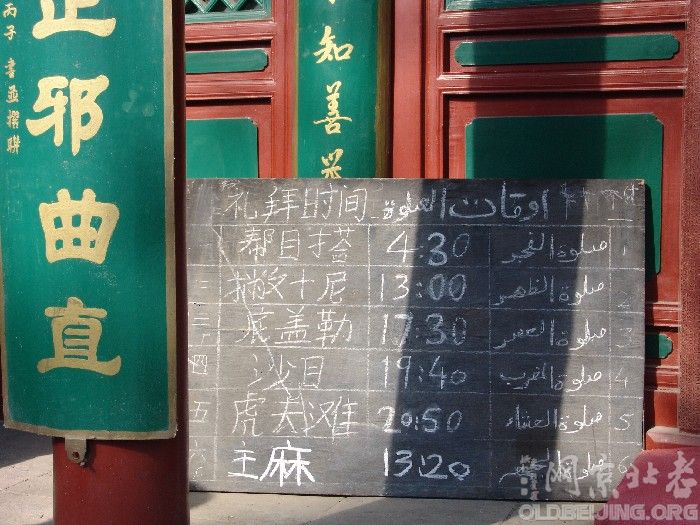 正邪曲直
丙子 書並撰聯
知善
礼拜时间 اوقات الصلوة
一 帮目搭 4:30 صلوة الفجر 1
二 撇什尼 13:00 صلوة الظهر 2
三 底盖勒 17:30 صلوة العصر 3
四 沙目 19:40 صلوة المغرب 4
五 虎夫滩 20:50 صلوة العشاء 5
六 主麻 13:20 صلوة 6
网京北老
OLDBEIJING.ORG